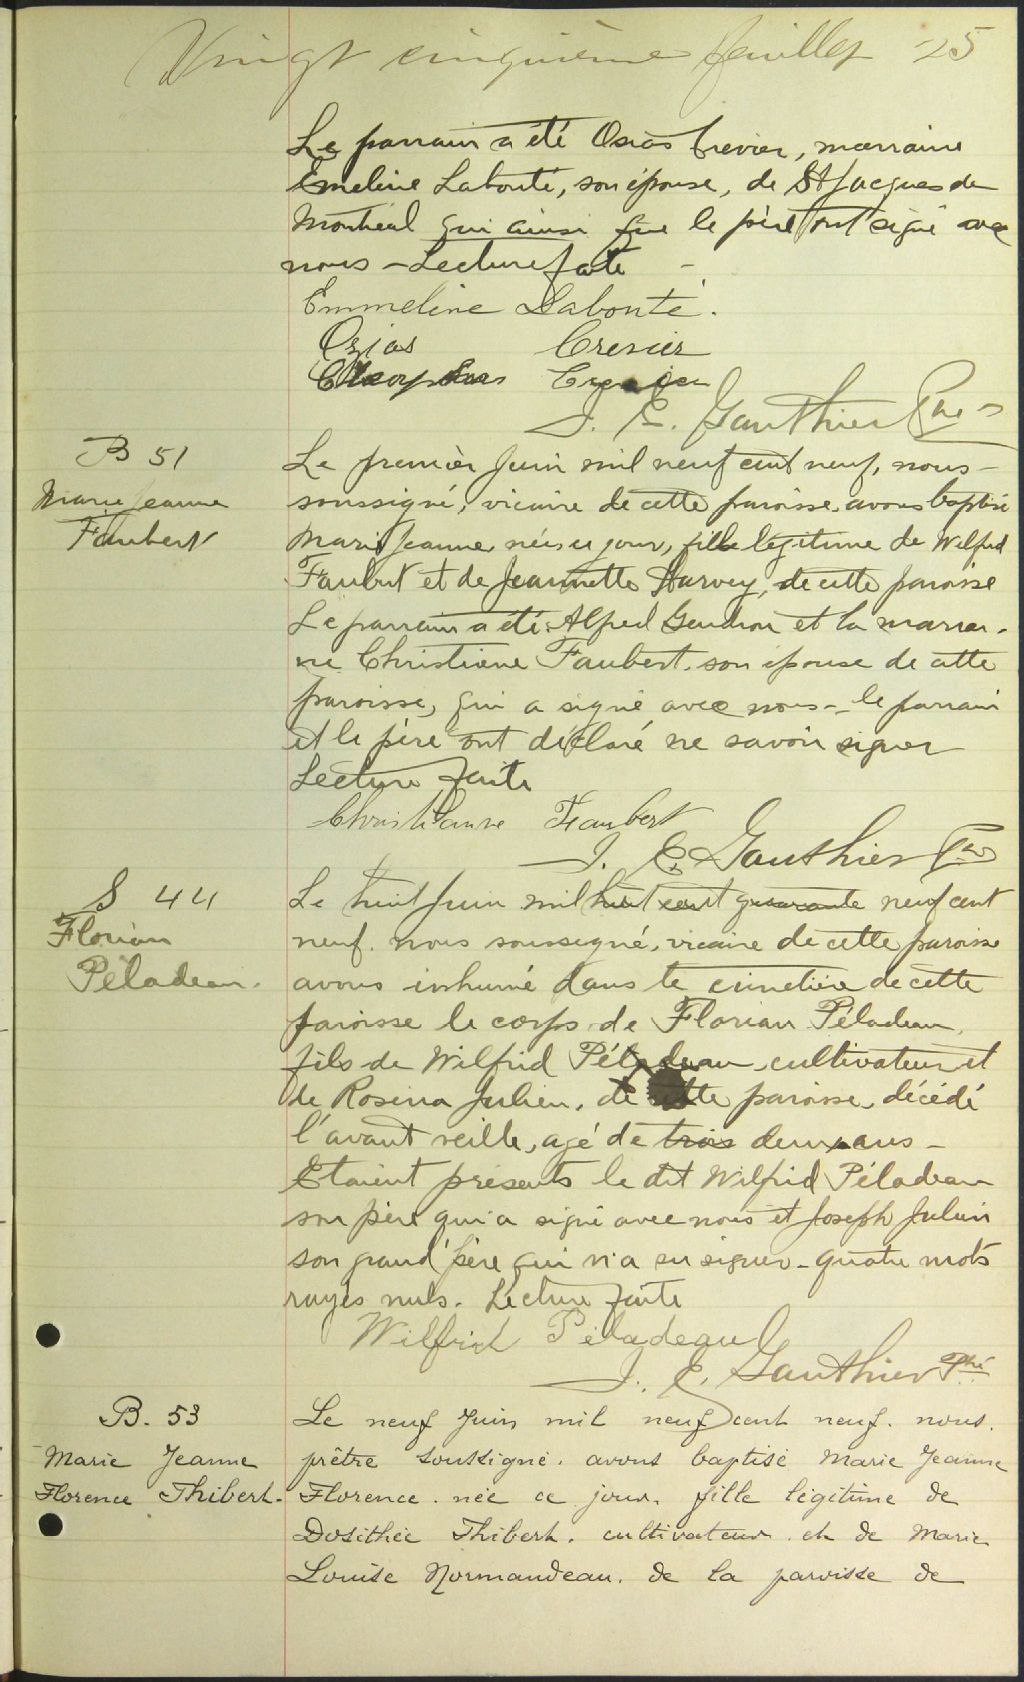 Vingt cinquième feuillet 25
Le parrain a été Osias Crevier, marraine
Emeline Labonté, son épouse, de St Jacques de
Montréal qui ainsi que le père ont signé avec
nous - Lecture faite -
Emmeline Labonté.
Ozias Crevier
Crevier
J. E. Gauthier Ptre
B 51
Marie Jeanne
Faubert
Le premier Juin mil neuf cent neuf, nous
soussigné, vicaire de cette paroisse avons baptisé
Marie Jeanne, née ce jour, fille légitime de Wilfrid
Faubert et de Jeannette Harvey, de cette paroisse
Le parrain a été Alfred Gendron et la marrai-
ne Christiane Faubert, son épouse de cette
paroisse, qui a signé avec nous - le parrain
et le père ont déclaré ne savoir signer
Lecture faite
Christianne Faubert
J. E. Gauthier Ptre
S 44
Florian
Péladeau.
Le huit Juin mil huit cent quarante neuf cent
neuf. nous soussigné, vicaire de cette paroisse
avons inhumé dans le cimetière de cette
paroisse le corps de Florian Péladeau
fils de Wilfrid Péladeau, cultivateur et
de Rosina Julien, de cette paroisse, décédé
l'avant veille, agé de trois deux ans -
Etaient présents le dit Wilfrid Péladeau
son père qui a signé avec nous et Joseph Julien
son grand père qui n'a su signer - quatre mots
rayés nuls. Lecture faite
Wilfrid Péladeau
J. E. Gauthier Ptre
B. 53
Marie Jeanne
Florence Thibert.
Le neuf Juin mil neuf cent neuf. nous.
prêtre soussigné. avons baptisé Marie Jeanne
Florence. née ce jour. fille légitime de
Dosithée Thibert. cultivateur. et de Marie
Louise Normandeau. de la paroisse de